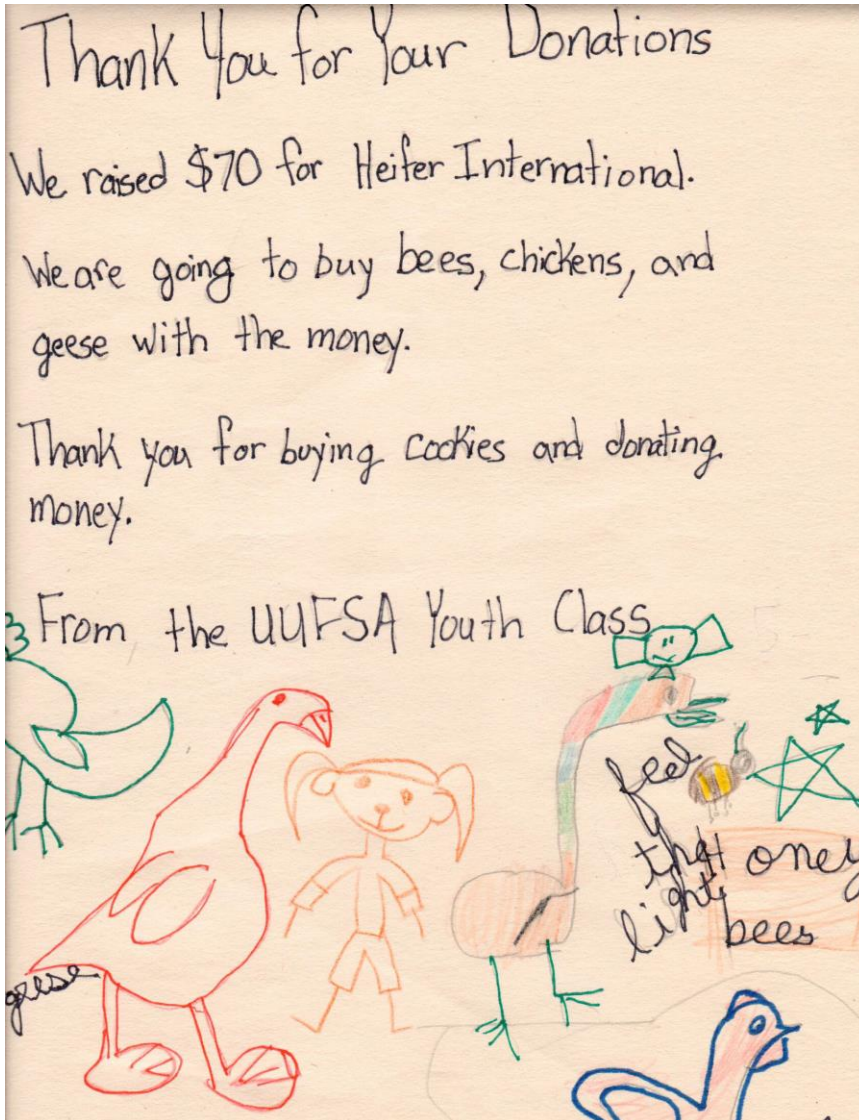 Thank You for Your Donations
We raised $70 for Heifer International.
We are going to buy bees, chickens, and
geese with the money.
Thank you for buying cookies and donating
money.
From the UUFSA Youth Class
feel
the
light
Honey
bees
geese